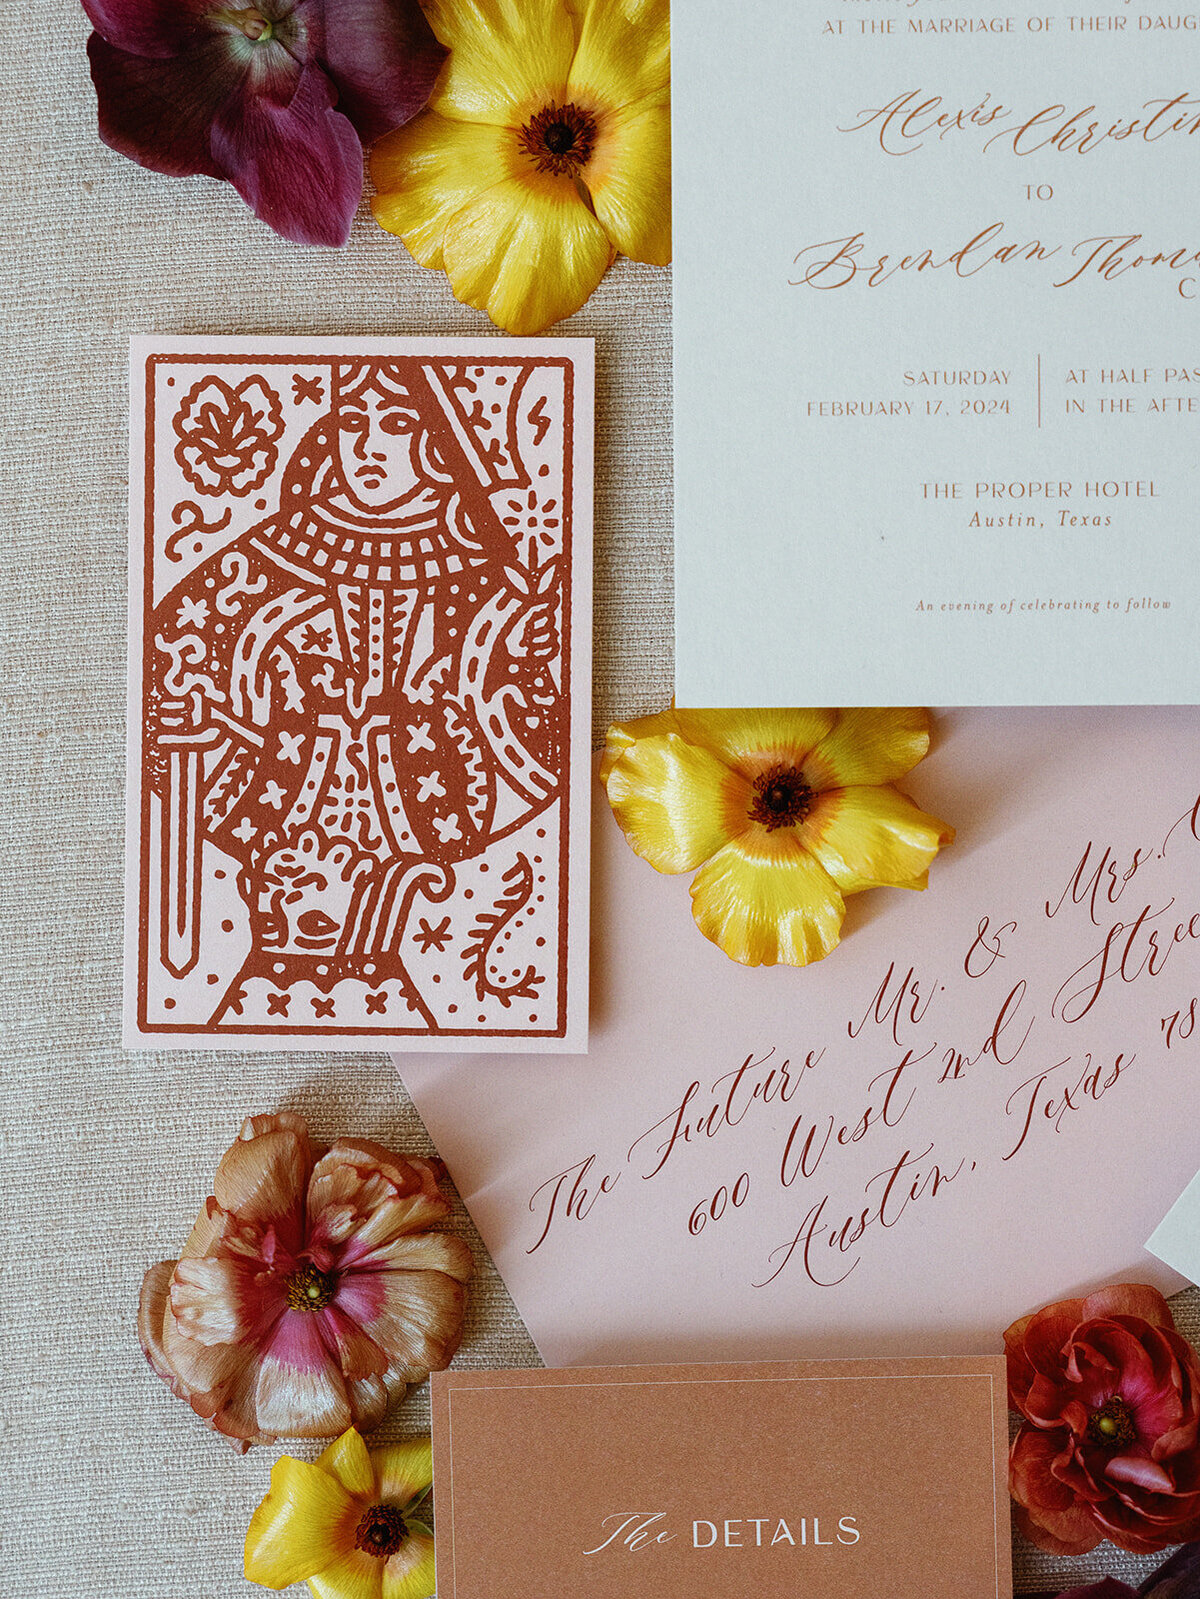 AT THE MARRIAGE OF THEIR
Alexis
TO
Brendan
SATURDAY
FEBRUARY 17, 2024
AT HALF
IN THE
THE PROPER HOTEL
Austin, Texas
An evening of celebrating to follow
The Future Mr. & Mrs.
600 West 2nd
Austin, Texas
The DETAILS